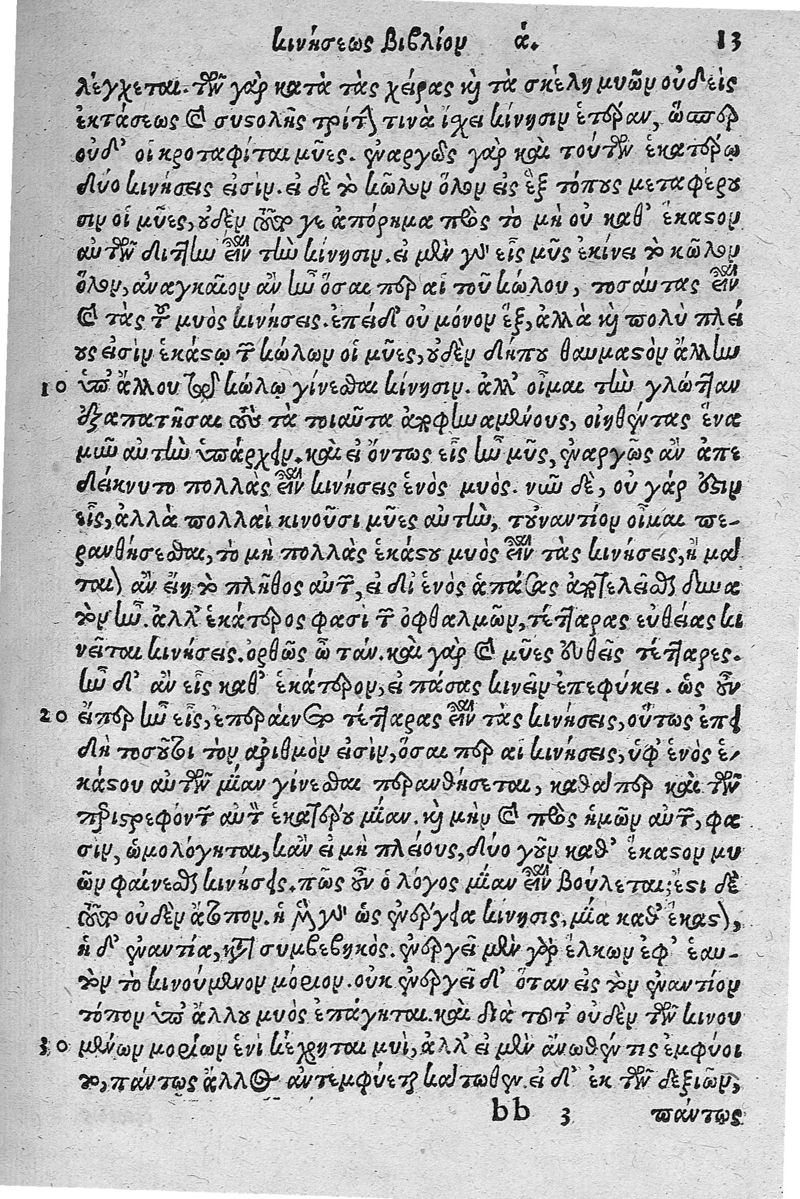 κινήσεως βιβλίον ά. 13
λέγχεται. τῶν γὰρ κατὰ τὰς χεῖρας καὶ τὰ σκέλη μυῶν οὐδεὶς
ἐκτάσεως καὶ συστολῆς τρίτην τινὰ ἴσχει κίνησιν ἑτέραν, ὥσπερ
οὐδ' οἱ κροταφῖται μῦες. ἐναργῶς γὰρ καὶ τούτων ἑκατέρῳ
δύο κινήσεις εἰσίν. εἰ δὲ τὸ κῶλον ὅλον εἰς ἓξ τόπους μεταφέρου
σιν οἱ μῦες, οὐδὲν τοῦτό γε ἀπόρημα πρὸς τὸ μὴ οὐ καθ' ἕκαστον
αὐτῶν διττὴν εἶναι τὴν κίνησιν. εἰ μὲν γὰρ εἷς μῦς ἐκίνει τὸ κῶλον
ὅλον, ἀναγκαῖον ἂν ἦν ὅσαι περ αἱ τοῦ κώλου, τοσαύτας εἶναι
καὶ τὰς τοῦ μυὸς κινήσεις. ἐπεὶ δ' οὐ μόνον ἓξ, ἀλλὰ καὶ πολὺ πλεί
ους εἰσὶν ἑκάστῳ τῶν κώλων οἱ μῦες, οὐδὲν δήπου θαυμαστὸν ἄλλην
10 ὑπ' ἄλλου τῷ κώλῳ γίνεσθαι κίνησιν. ἀλλ' οἶμαι τὴν γλῶτταν
ἐξαπατῆσαι τοὺς τὰ τοιαῦτα ἀποφηναμένους, οἰηθέντας ἕνα
μῦν αὐτὴν ὑπάρχειν. καὶ εἰ ὄντως εἷς ἦν μῦς, ἐναργῶς ἂν ἀπε
δείκνυτο πολλὰς εἶναι κινήσεις ἑνὸς μυός. νῦν δὲ, οὐ γάρ ἐστιν
εἷς, ἀλλὰ πολλοὶ κινοῦσι μῦες αὐτὴν, τοὐναντίον οἶμαι πε-
ρανθήσεσθαι, τὸ μὴ πολλὰς ἑκάστου μυὸς εἶναι τὰς κινήσεις, ἢ μά
ταιον ἂν εἴη τὸ πλῆθος αὐτῶν, εἰ δι' ἑνὸς ἁπάσας ἀποτελεῖσθαι δυνα
τὸν ἦν. ἀλλ' ἑκάτερος φασὶ τῶν ὀφθαλμῶν, τέτταρας εὐθείας κι
νεῖται κινήσεις. ὀρθῶς ὦ τάν. καὶ γὰρ καὶ μῦες εὐθεῖς τέτταρες.
ἦν δ' ἂν εἷς καθ' ἑκάτερον, εἰ πάσας κινεῖν ἐπεφύκει. ὡς οὖν
20 εἴπερ ἦν εἷς, ἐπεραίνετο τέτταρας εἶναι τὰς κινήσεις, οὕτως ἐπει
δὴ τοσοῦτοι τὸν ἀριθμὸν εἰσὶν, ὅσαι περ αἱ κινήσεις, ὑφ' ἑνὸς ἑ-
κάστου αὐτῶν μίαν γίνεσθαι περανθήσεται, καθάπερ καὶ τῶν
περιστρεφόντων αὐτὸν ἑκατέρου μίαν. καὶ μὴν καὶ πρὸς ἡμῶν αὐτῶν, φα
σὶν, ὡμολόγηται, κἂν εἰ μὴ πλείους, δύο γοῦν καθ' ἕκαστον μυ
ῶν φαίνεσθαι κινήσεις. πῶς οὖν ὁ λόγος μίαν εἶναι βούλεται; ἔστι δὲ
τοῦτο οὐδὲν ἄτοπον. ἡ μὲν γὰρ ὡς ἐνέργεια κίνησις, μία καθ' ἕκαστον,
ἡ δ' ἐναντία, κατὰ συμβεβηκός. ἐνεργεῖ μὲν γὰρ ἕλκων ἐφ' ἑαυ-
τὸν τὸ κινούμενον μόριον. οὐκ ἐνεργεῖ δ' ὅταν εἰς τὸν ἐναντίον
τόπον ὑπ' ἄλλου μυὸς ἐπάγηται. καὶ διὰ τοῦτ' οὐδὲν τῶν κινου
30 μένων μορίων ἑνὶ κέχρηται μυὶ, ἀλλ' εἰ μὲν ἄνωθέν τις ἐμφύοι
το, πάντως ἄλλος ἀντεμφύεται κάτωθεν. εἰ δ' ἐκ τῶν δεξιῶν,
bb 3 πάντως